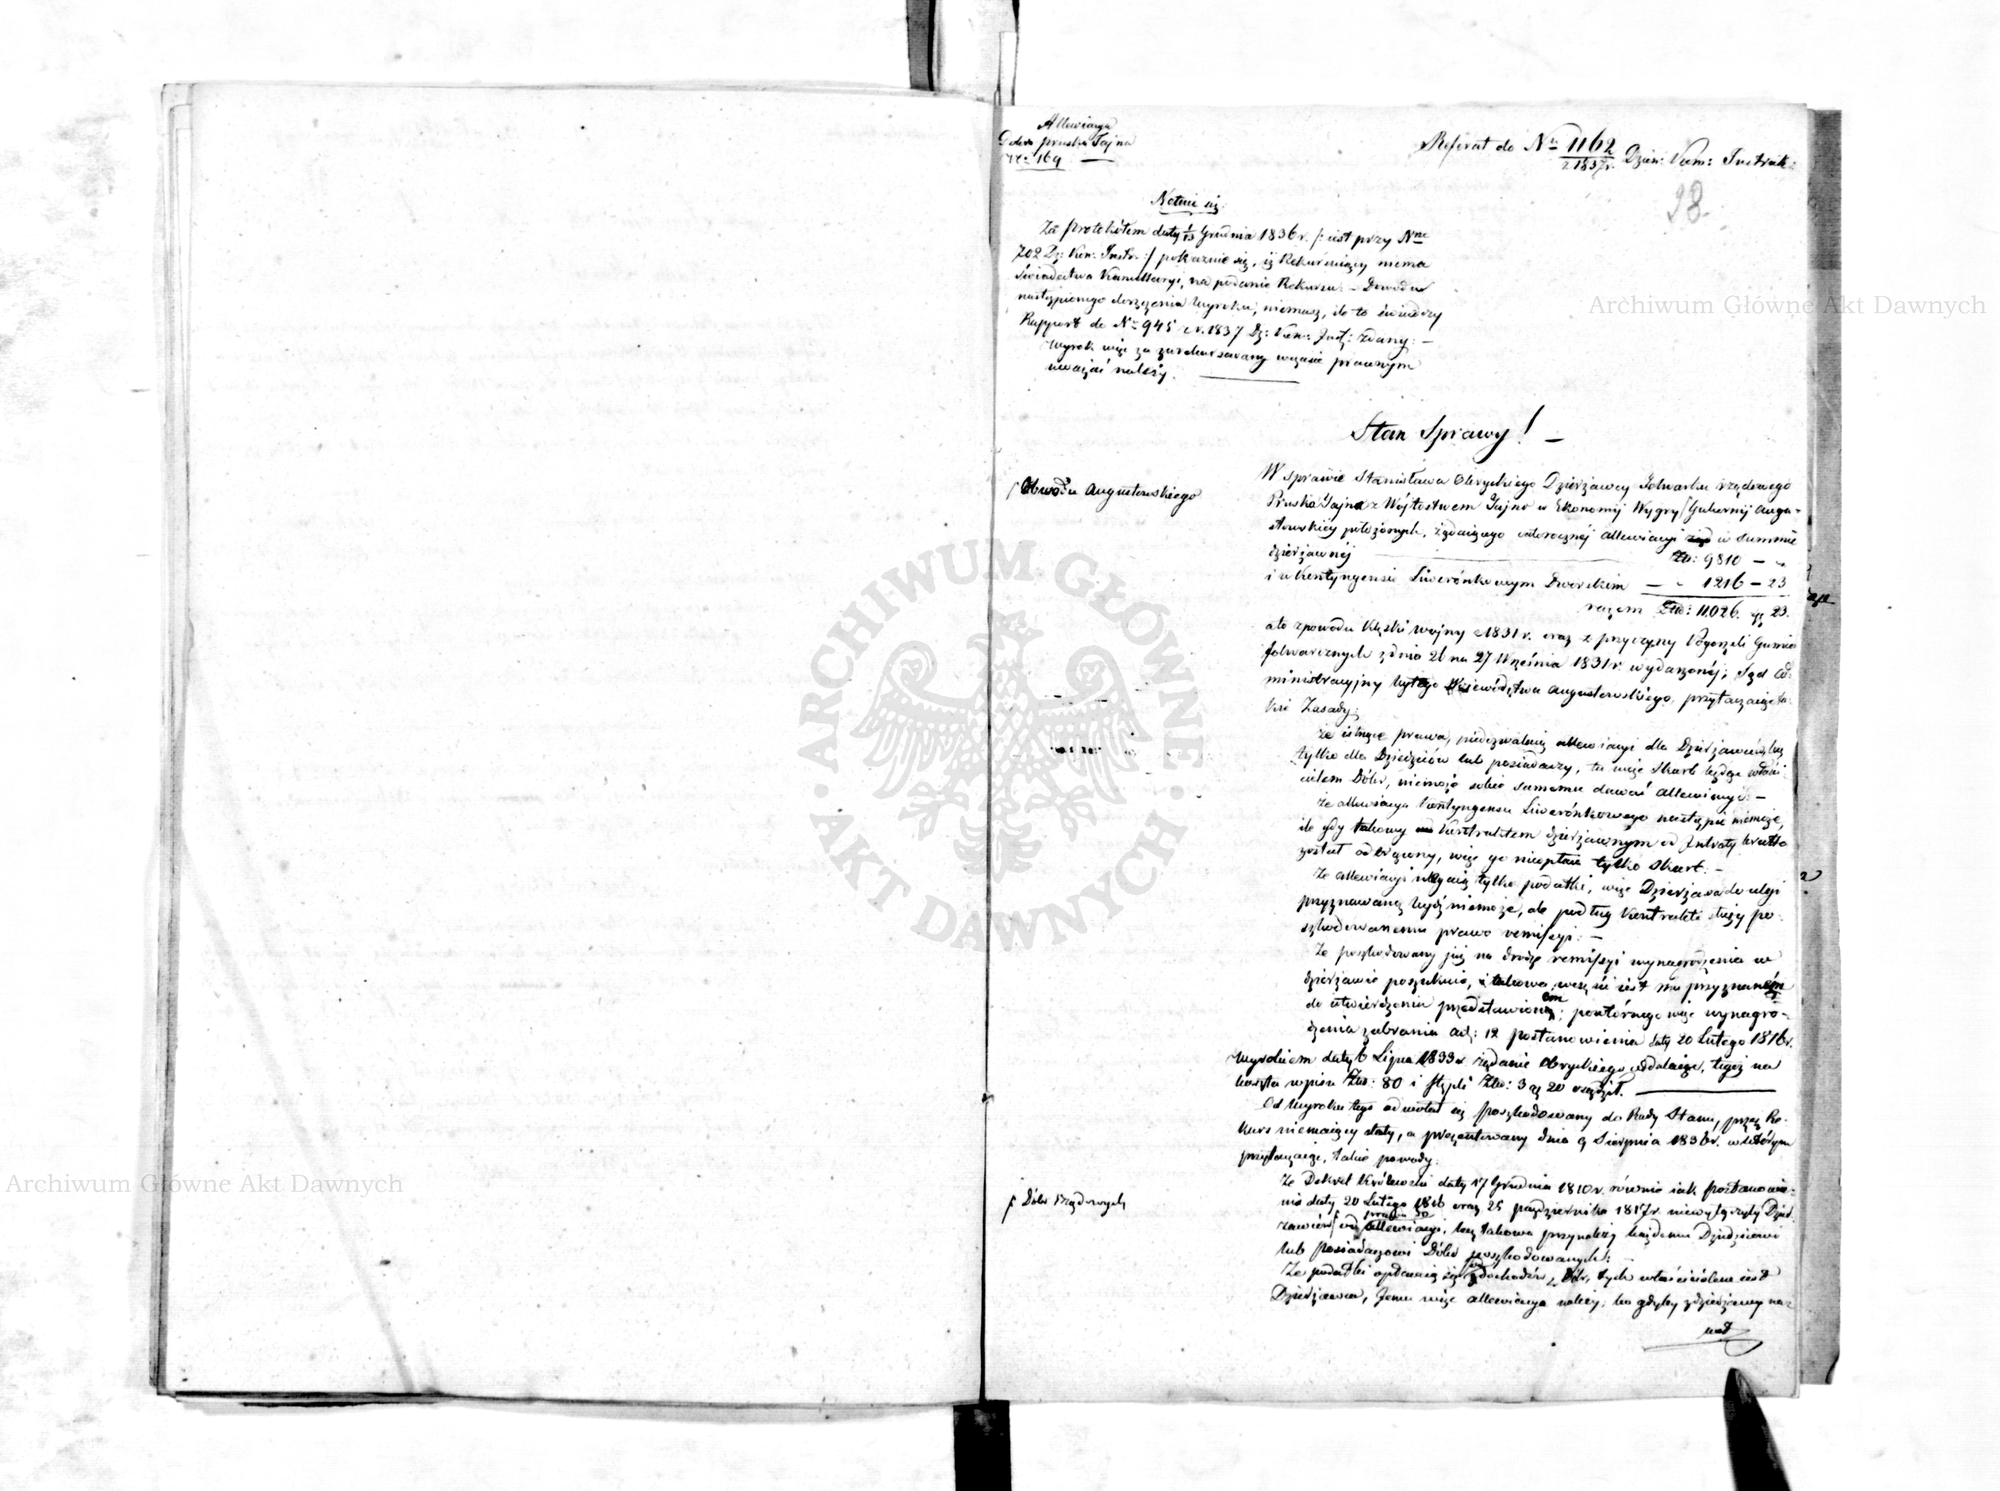 Allewiacya
Dobra pruska Jajna
Nro 169
Referat do Nru 1162 / z 1837r. Dzien: Kom: Instruk:
28.
Notuie się:
Za protokółem daty 1/13 Grudnia 1836 r. /: iest przy Nrze
702 Dz: Kom: Instr: :/ pokazuie się, iż Rekuruiący niema
świadectwa Kancellaryi, na podanie Rekursu. – Dowodu
nastąpionego doręczenia Wyroku, niemasz, ile to świadczy
Rapport do Nru 945 z r. 1837 Dz: Kom: Inst: zdany: –
Wyrok więc za zarekursowany w czasie prawnym
uważać należy.
Stan Sprawy! –
W sprawie Stanisława Obryckiego Dzierżawcy Folwarku rządowego
Pruska Jajna z Wójtostwem Jajno w Ekonomij Wygry / Gubernij Augu-
stowskiey położonych, żądaiącego wieloroczney allewiacyi w summie
dzierżawnéj Złp: 9810 – „
i w Kontyngensie Liwerónkowym Dworskim – „ 1216 – 23
razem Złp: 11026 gr 23.
/ Obwodu Augustowskiego
a to z powodu Klęski woyny z 1831 r. oraz z przyczyny Pogorzeli Gumien
folwarcznych z dnia 26 na 27 Września 1831 r. wydarzonéj; Sąd Ad-
ministracyjny byłego Województwa Augustowskiego, przytaczaiąc ta-
kie Zasady;
Że istniące prawa, niedozwalaią allewiacyi dla Dzierżawców, lecz
tylko dla Dziedziców lub posiadaczy, tu więc Skarb będąc właści-
cielem Dóbr, niemoże sobie samemu dawać allewiacyi: –
Że allewiacya Kontyngensu Liwerónkowego nastąpić niemoże,
ile gdy takowy Kontraktem dzierżawnym od Intraty brutto
został odtrącony, więc go niepłaci tylko Skarb. –
Że allewiacyi ulegaią tylko podatki, więc Dzierżawa do ulgi
przyznawaną bydź niemoże, ale podług Kontraktu służy po-
szkodowanemu prawo remissyi: –
Że poszkodowany już na drodze remissyi wynagrodzenia w
dzierżawie poszukuie, i takowa w części iest mu przyznaném
do utwierdzenia przedstawioném; powtórnego więc wynagro-
dzenia zabrania art: 12 postanowienia daty 20 Lutego 1816 r.
Wyrokiem daty 6 Lipca 1833 r. żądanie Obryckiego oddalaiąc, tegoż na
koszta wpisu Złp: 80 i stępli Złp: 3 gr 20 osądził.
Od Wyroku tego odwołał się poszkodowany do Rady Stanu, przez Re-
kurs niemaiący daty, a prezentowany dnia 9 Sierpnia 1836 r. w którym
przytaczaiąc, takie powody:
Że Dekret Królewski daty 17 Grudnia 1810 r. równie iak postanowie-
nia daty 20 Lutego 1816 oraz 25 października 1817 r. niewyłączyły Dzier-
żawców / od allewiacyi, lecz takowa przynależy każdemu Dziedzicowi
/ Dóbr Rządowych
lub Posiadaczowi Dóbr poszkodowanych:
Że podatki opłacaią się z dochodów, Dóbr, tych właścicielem iest
Dzierżawca, Jemu więc allewiacya należy; bo gdyby zdzierżawy nie